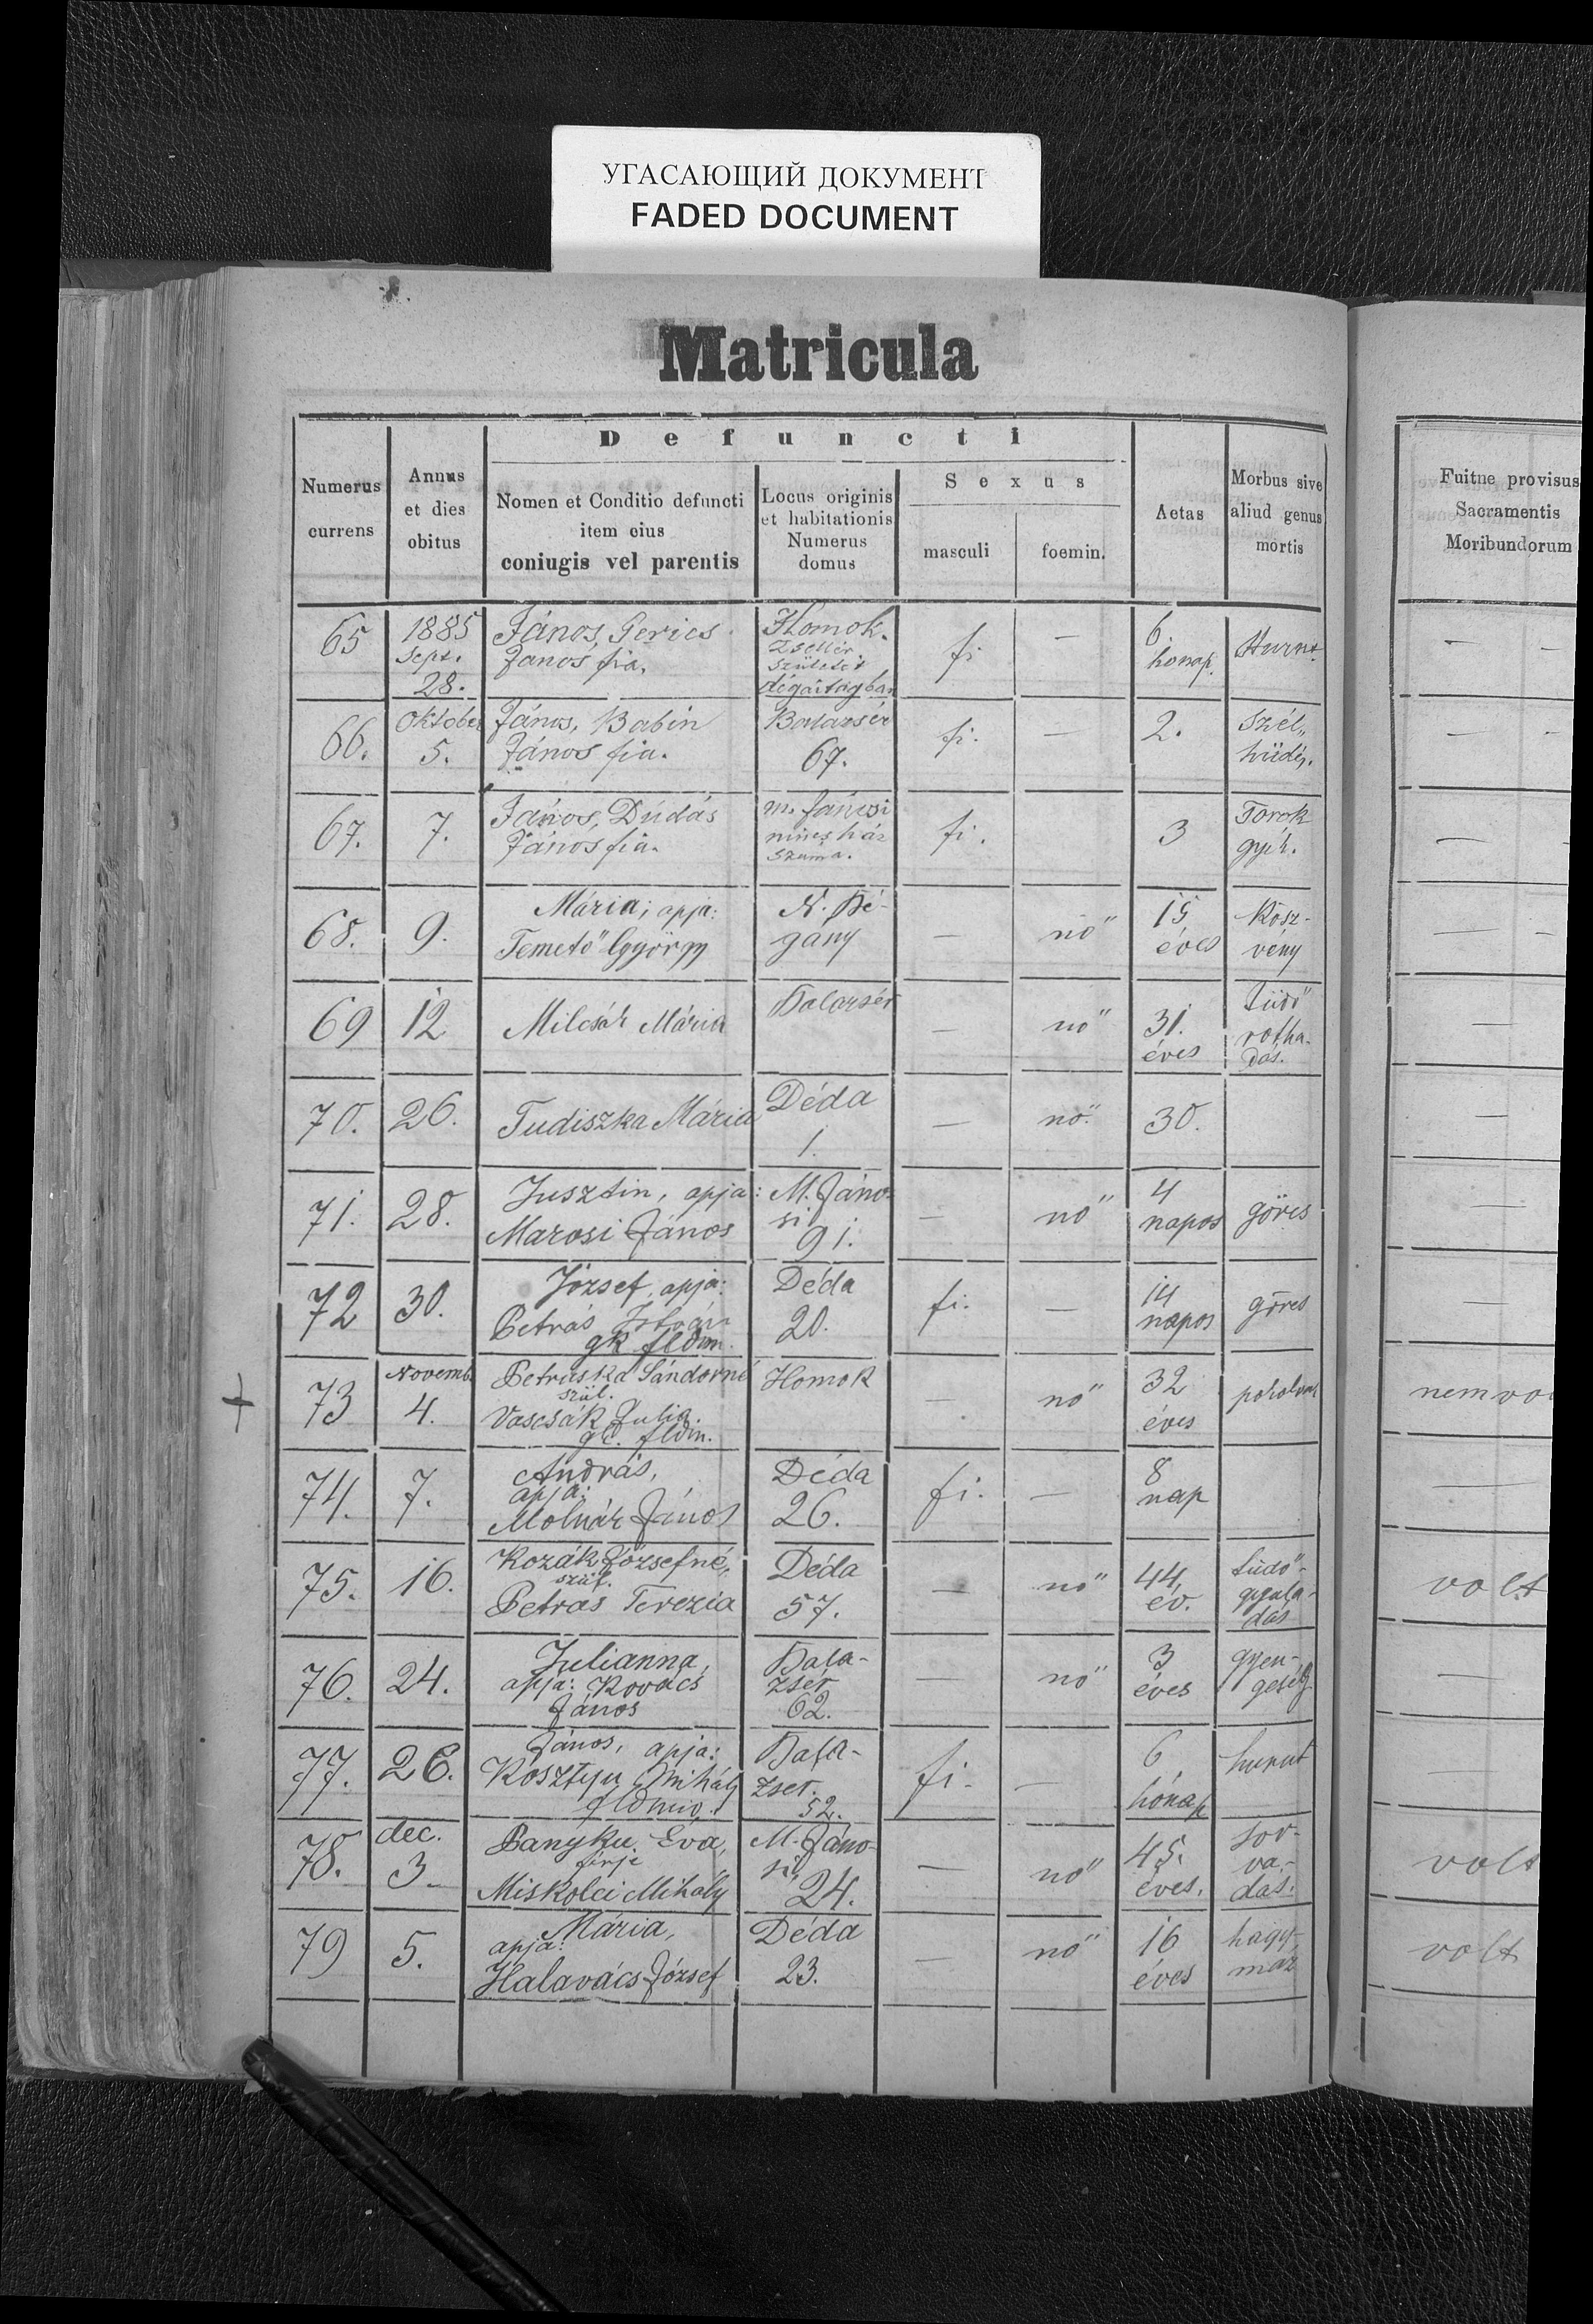 УГАСАЮЩИЙ ДОКУМЕНТ
FADED DOCUMENT
Matricula
Defuncti
Numerus currens
Annus et dies obitus
Nomen et Conditio defuncti item eius coniugis vel parentis
Locus originis et habitationis Numerus domus
Sexus
masculi
foemin.
Aetas
Morbus sive aliud genus mortis
Fuitne provisus Sacramentis Moribundorum
65 1885 Sept. 28. János, Perics János fia. Homok. Zsellér született dégaitagban fi — 6. honap. Hurut — —
66. Oktober 5. János, Babin János fia. Balazsér 67. fi. — 2. Szél„ hüdés. — —
67. 7. János, Dudás János fia. m. Jánosi nincs ház szama. fi. 3 Torok gyik. — —
68. 9. Mária; apja: Temető György N. Bé- gány — nő 15 éves Kösz- vény — —
69 12 Milcsák Mária Balazsér — nő 31. éves tüdő rotha- dás. —
70. 26. Tudiszka Mária Déda 1. — nő. 30. —
71. 28. Jusztin, apja: Marosi János M. Jáno- si 91. — nő 4 napos görcs —
72 30. József, apja: Petrás István gk fldm. Déda 20. fi. — 14 napos görcs —
+ 73 Novemb. 4. Petruska Sándorné szül. Vascsák Julia. gk. fldm. Homok — nő 32 éves nem vo
74. 7. András, apja: Molnár János Déda 26. fi. — 8 nap —
75. 16. Kozák Józsefné, szül. Petras Terezia Déda 57. — nő 44 év. tüdő- gyula- dás volt
76. 24. Julianna, apja: Kovács János Bala- zsér 62. — nő 3 éves gyen- geség —
77. 26. János, apja: Kosztyu Mihály fldmiv. Bala- zser. 52. fi. — 6 hónap hurut —
78. dec. 3. Panyku Éva, férje Miskolci Mihály M. Jáno- si 24. — nő 45. éves. sor- va- dás. volt
79 5. Mária, apja: Halavács József Déda 23. — nő 16 éves hagy- máz volt